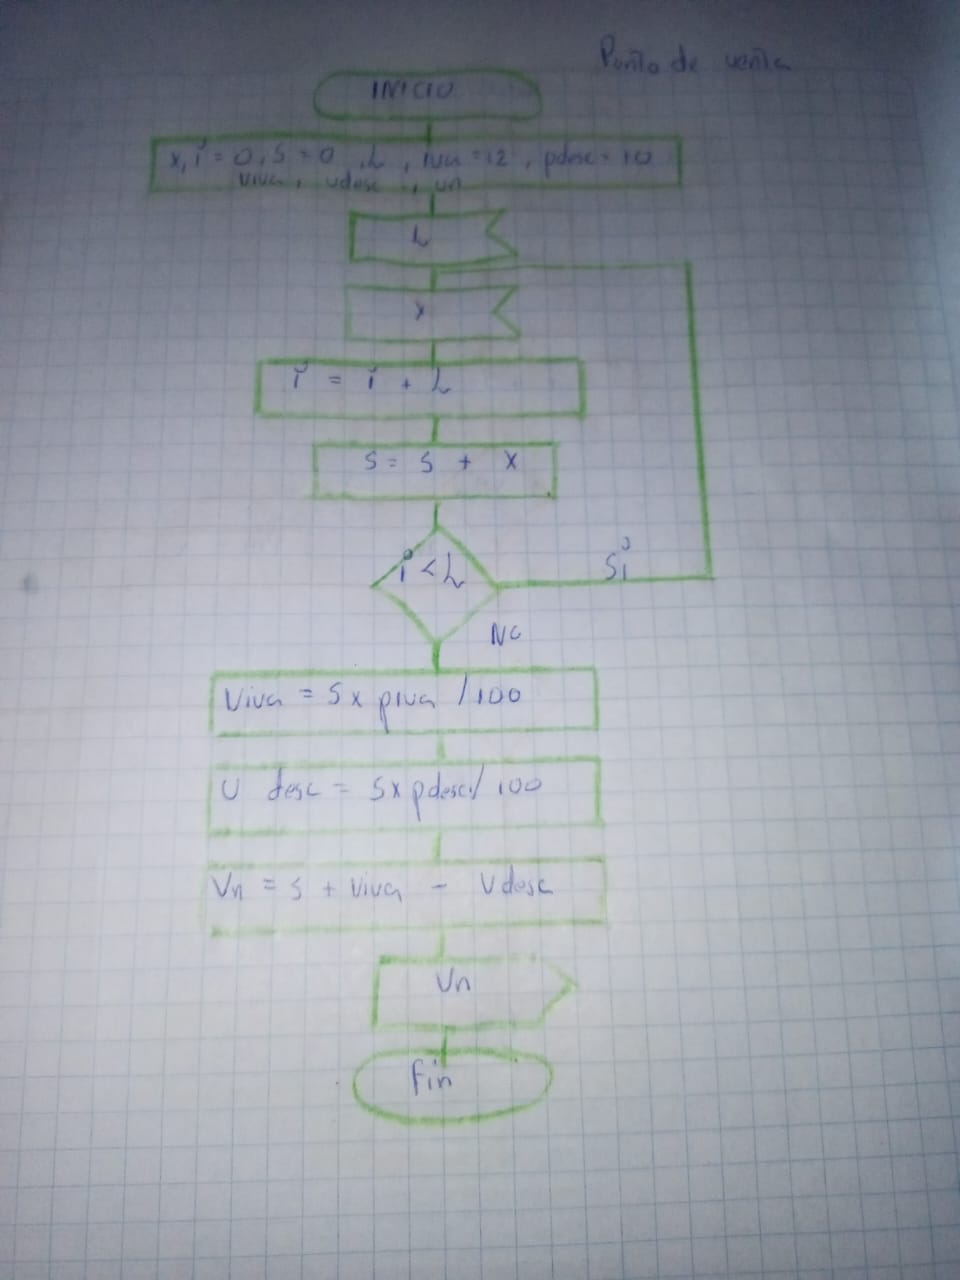 Punto de venta
INICIO
x, i = 0, S = 0, L, iva = 12, pdesc = 10
viva, vdesc, vn
L
x
i = i + L
S = S + X
i < L
Si
No
Viva = S x piva / 100
V desc = S x pdesc / 100
Vn = S + Viva - Vdesc
Vn
Fin